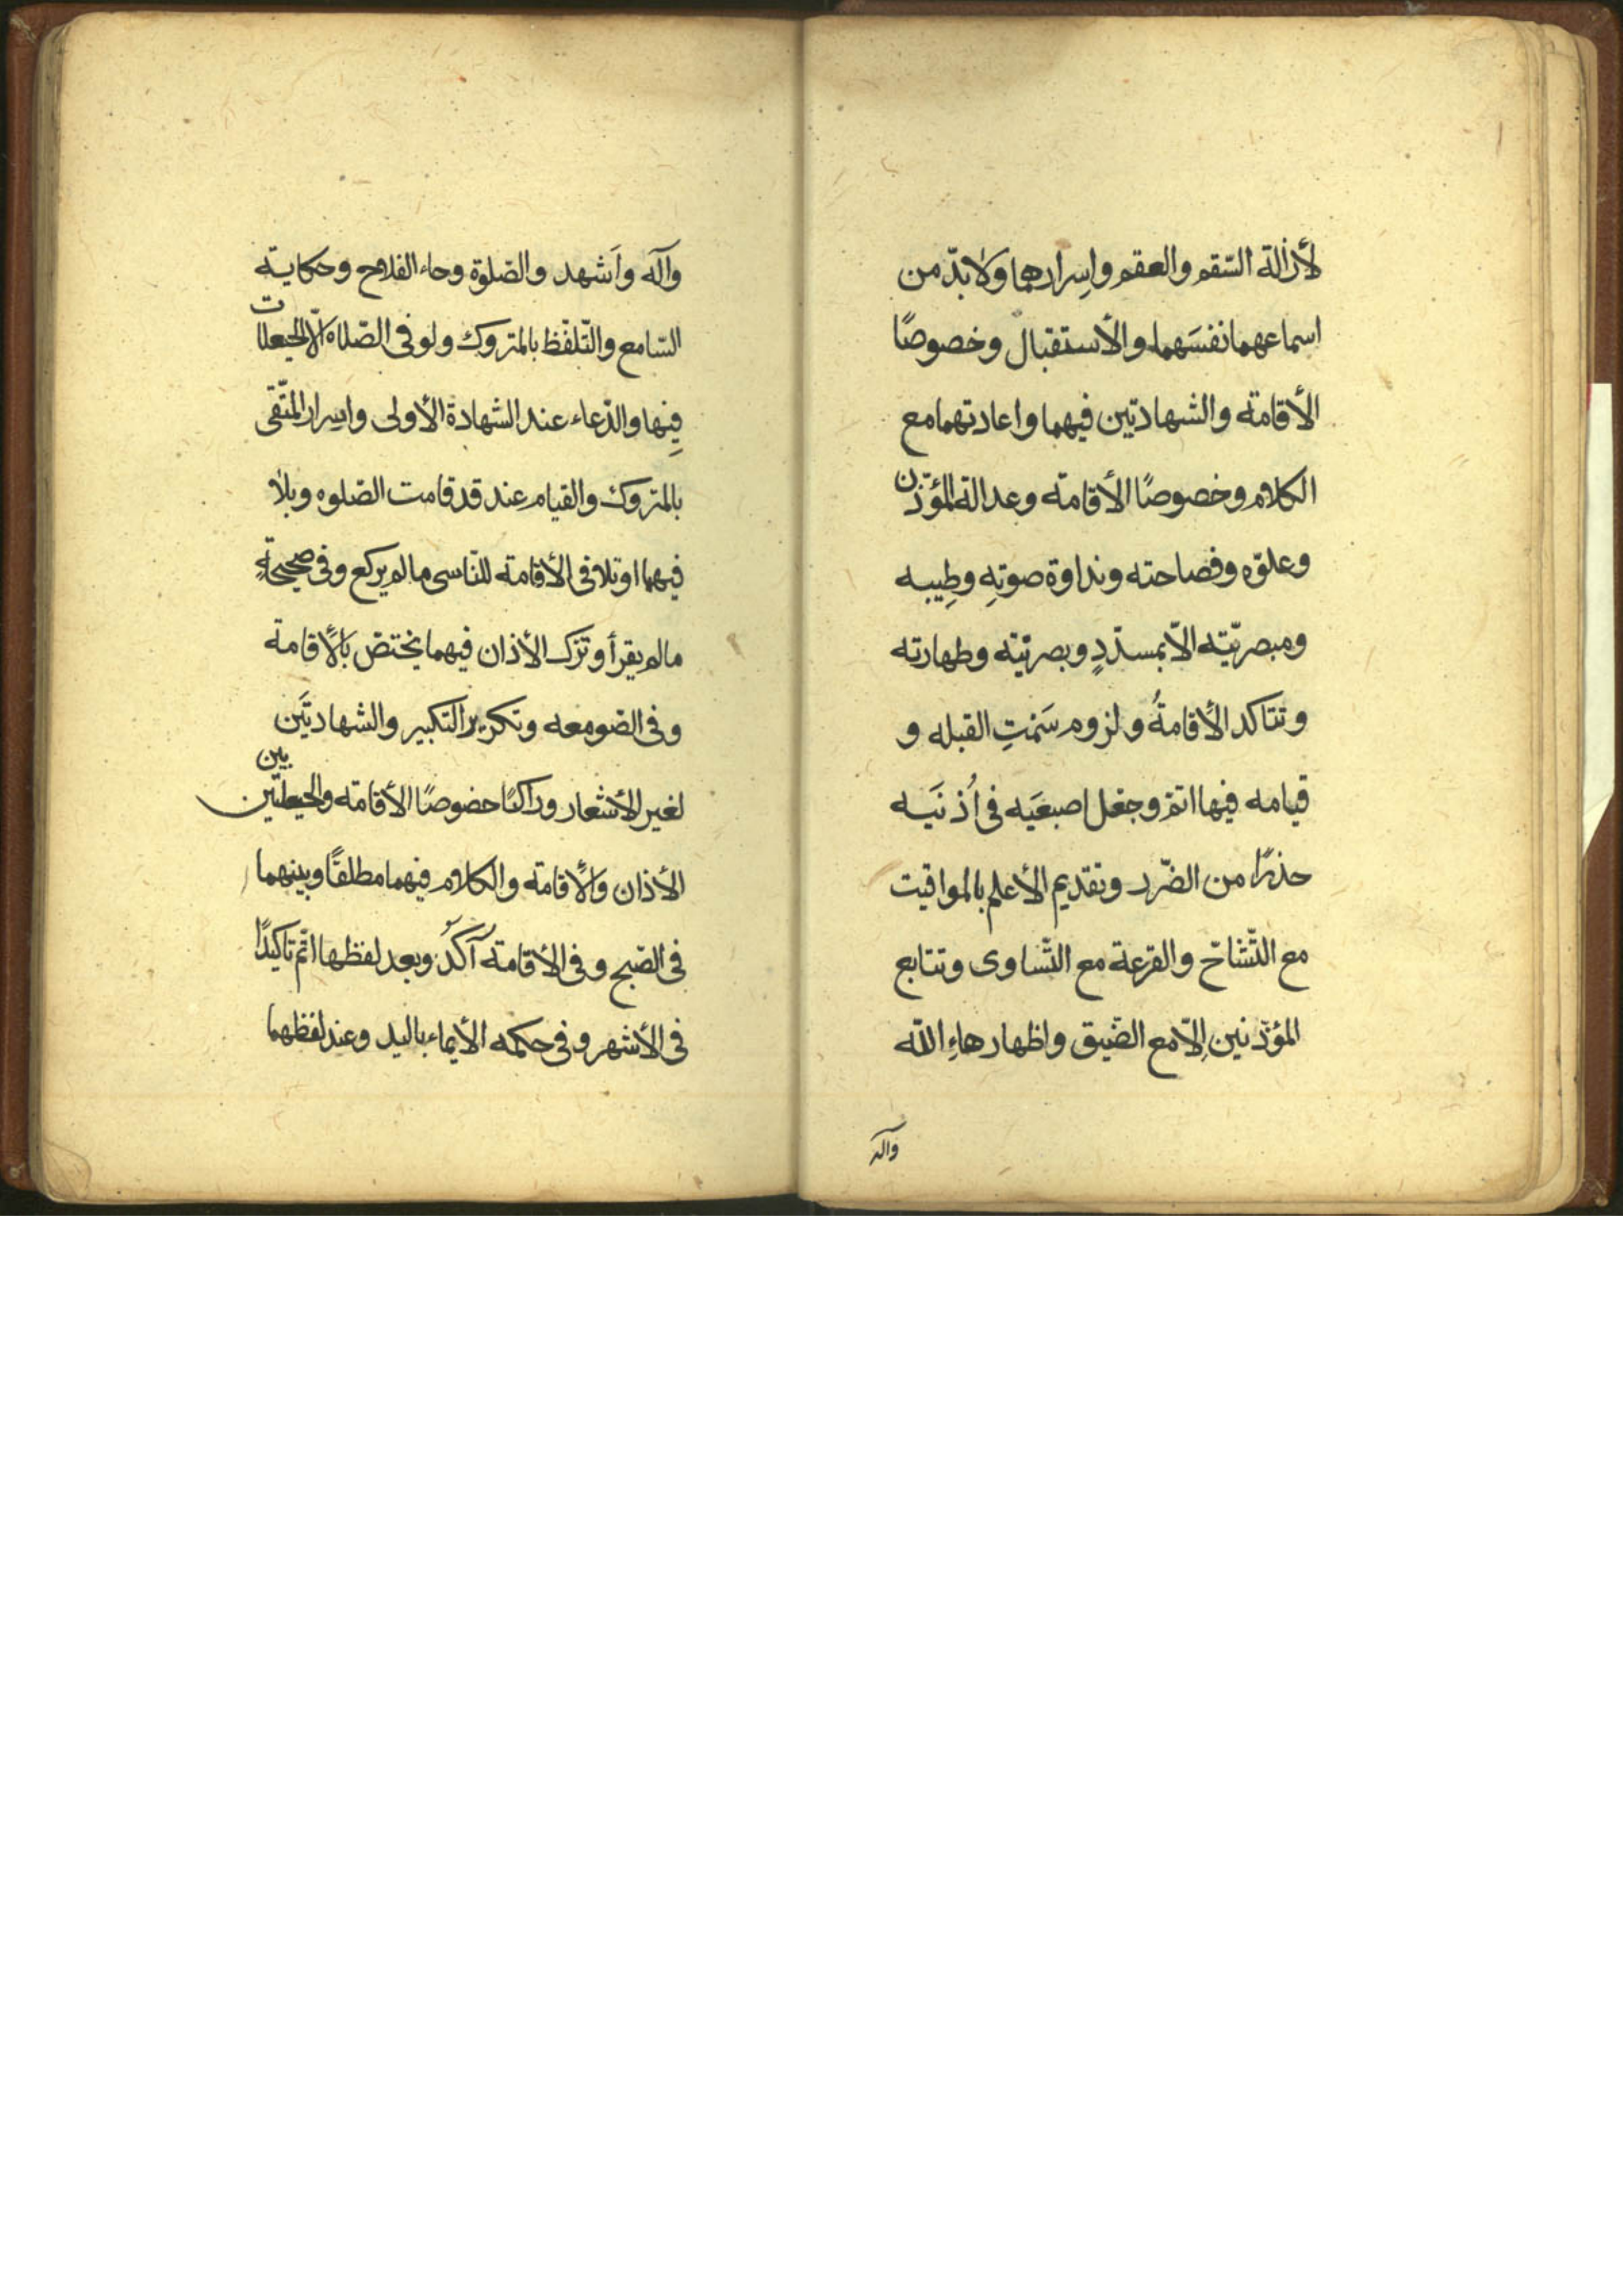 لأزالة السّقم والعقم واِسرارهما ولا بدّ من
اسماعهما نفسَهما والأستقبال وخصوصًا
الأقامة والشهادتين فيهما واعادتهما مع
الكلام وخصوصًا الأقامة وعدالة المؤذّن
وعلوّه وفصاحته ونداوة صوتِهِ وطِيبه
ومبصريّته الّا بمسدّدٍ وبصريّته وطهارته
وتتاكد الأقامةُ ولزوم سَمْتِ القبله و
قيامه فيها اتمّ وجعل اصبعَيه فى اُذنَيه
حذرًا من الضّرر وتقديم الأعلم بالمواقيت
مع التّشاحّ والقرعة مع التّساوى وتتابع
المؤذّنين اِلّا مع الضّيق واظهار هاءِ اللّه
واله
وآله واَشهد والصّلوة وحاء الفلاح وحكاية
السّامع والتّلفّظ بالمتروك ولو فى الصّلاة الّا الحيّعلات
فِيها والدّعاء عند الشهادة الأولى واسِرار المتّقى
بالمتروك والقيام عند قد قامت الصّلوه وبلا
فيهما او تلافى الأقامة للنّاسى ما لم يركع وفى صحيحةٍ
مالم يقرأ وتَرْك الأذان فيهما يختصّ بالأقامة
وفى الصّومعه وتكرير التكبير والشهادتَين
لغير الأشعار وراكبًا خصوصًا الأقامة والحيعلتين بين
الأذان والأقامة والكلام فيهما مطلقًا وبينهما
فى الصّبح وفى الأقامة آكَدُ وبعد لفظها اتمّ تاكيدًا
فى الأشهر وفى حكمه الأيماء باليد وعند لفظهما